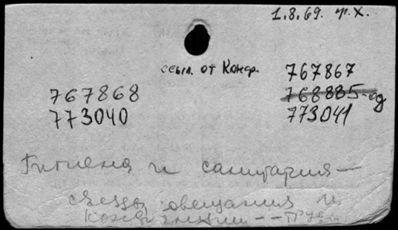 1.8.69. т.х.
ссыл. от Конф.
767867
767868
768885-ад
773040
773041
Гигиена и санитария —
съезды, совещания и
конференции -- труды